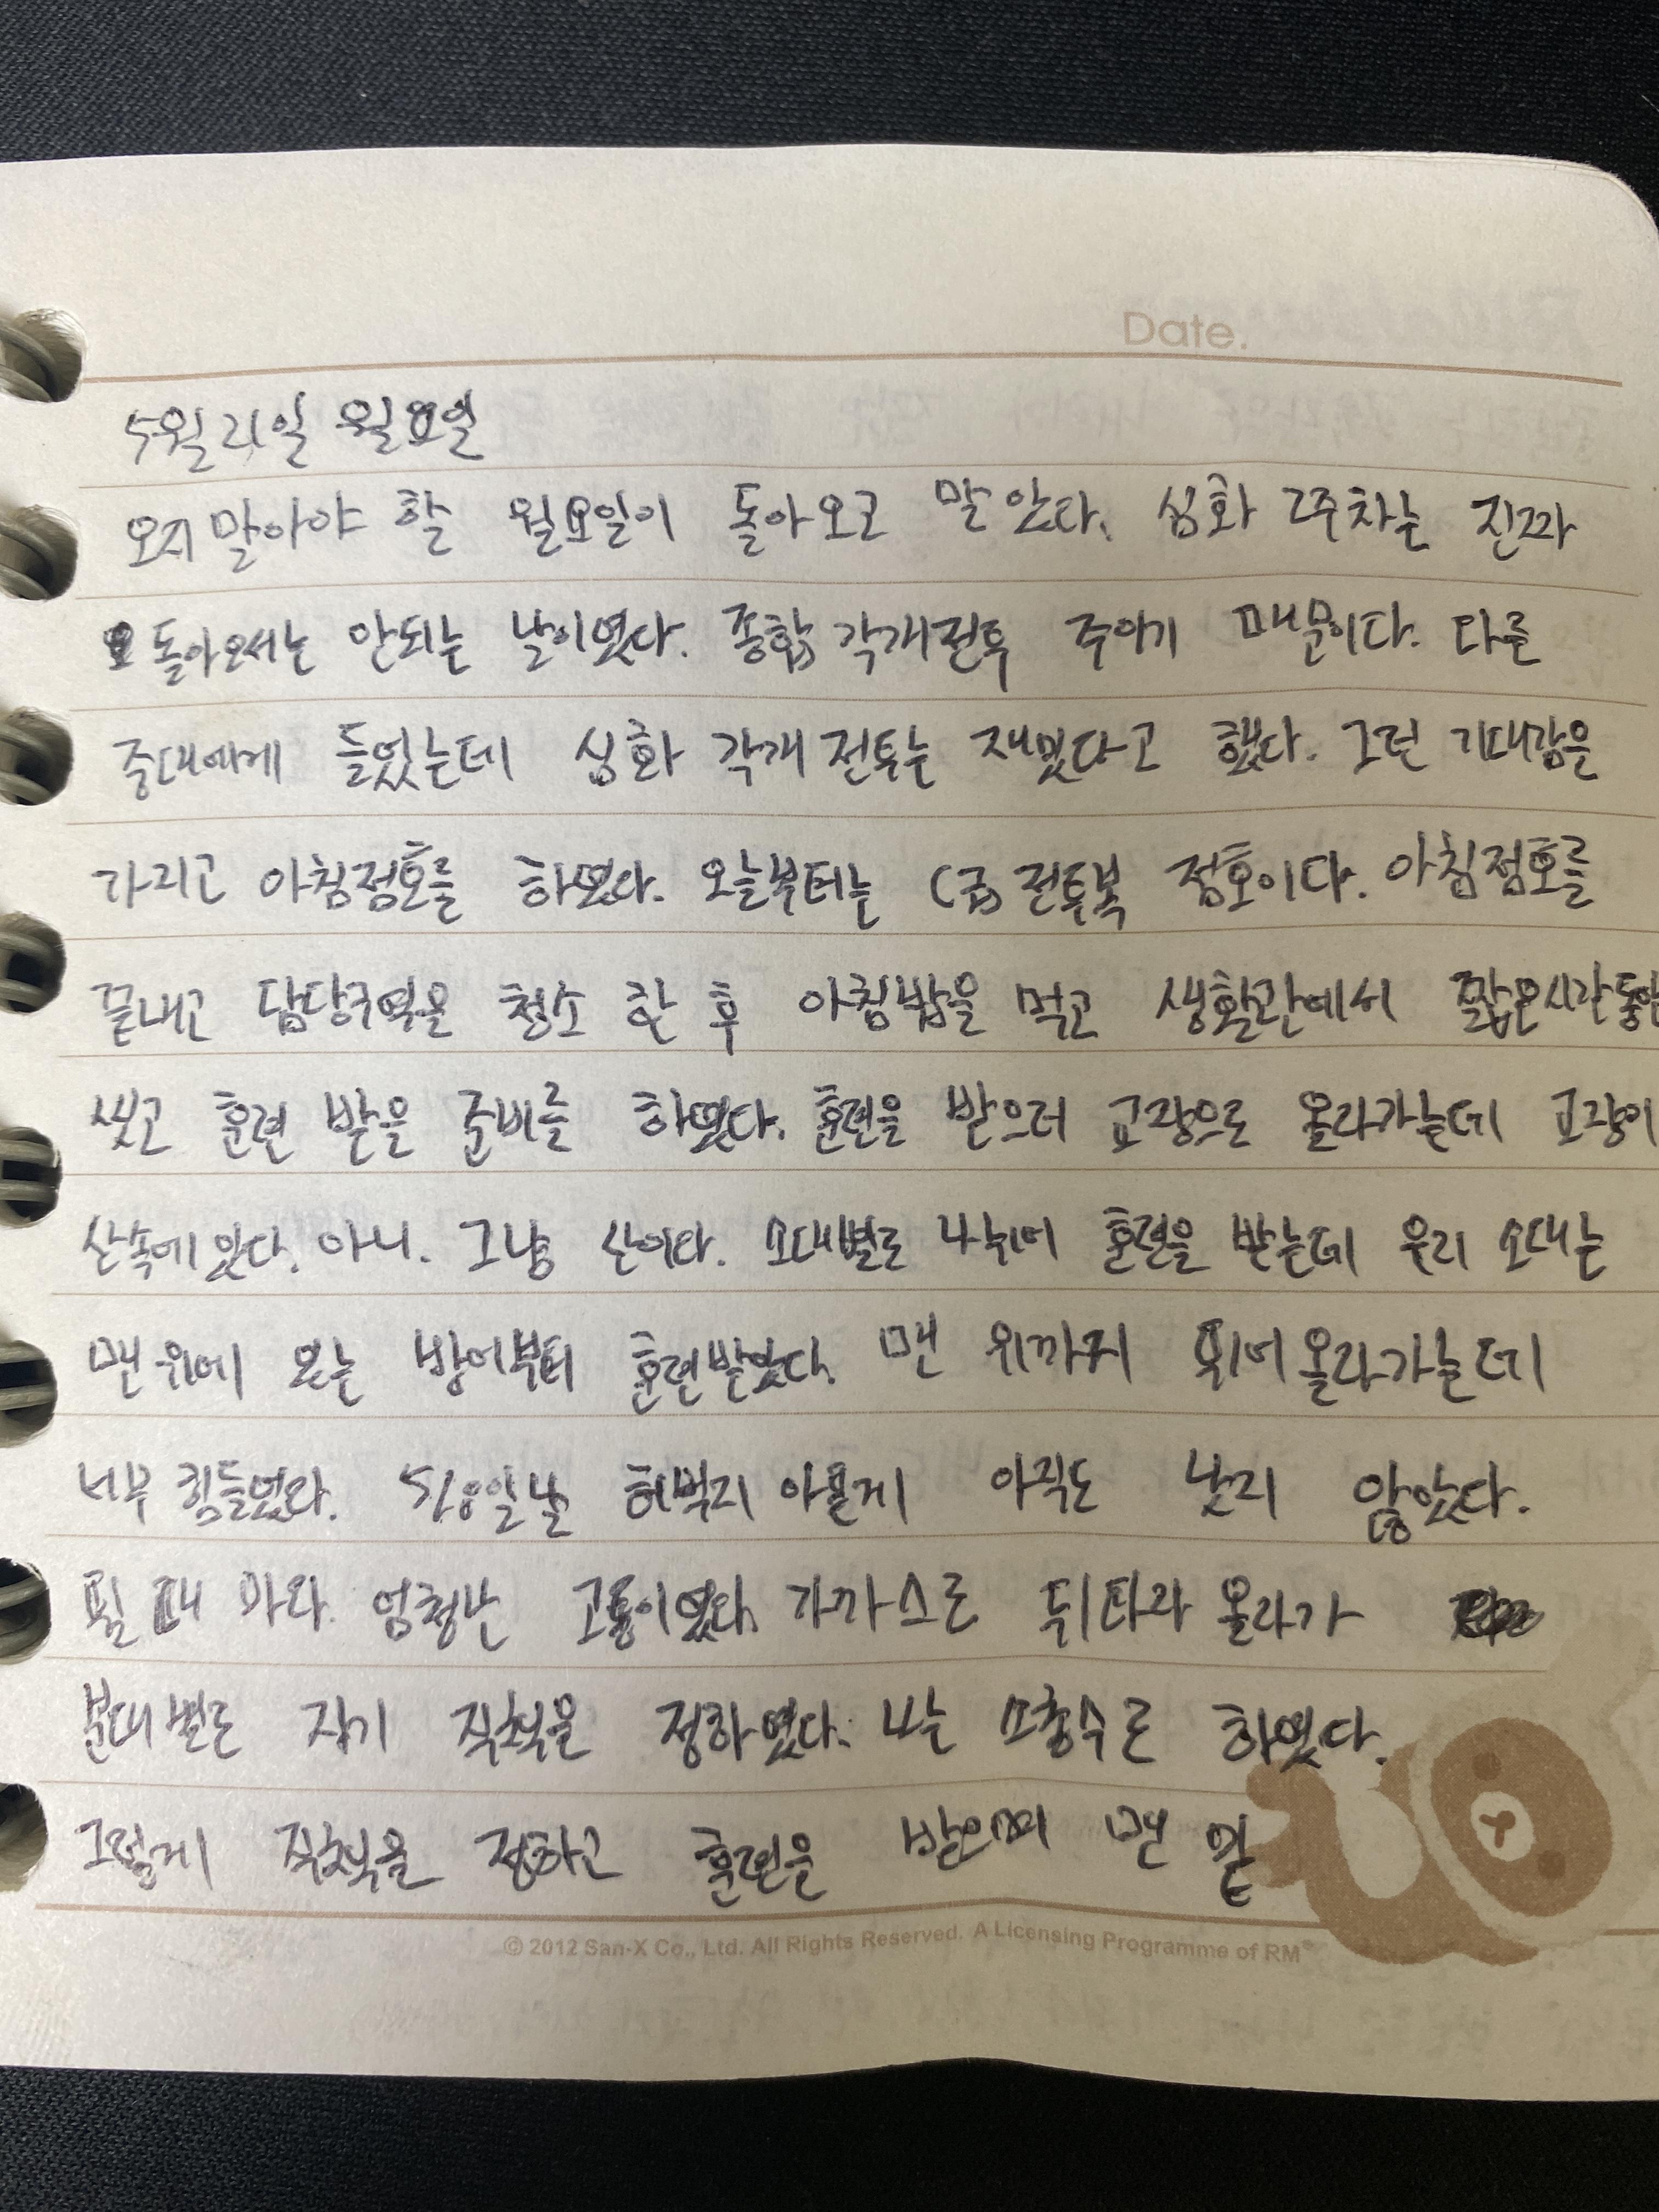 Date.
5월 21일 월요일
오지 말아야 할 월요일이 돌아오고 말았다. 심화 2주차는 진짜
돌아오서는 안되는 날이였다. 종합각개전투 주이기 때문이다. 다른
중대에게 들었는데 심화 각개전투는 재밌다고 했다. 그런 기대감을
가지고 아침점호를 하였다. 오늘부터는 C급 전투복 점호이다. 아침점호를
끝내고 담당구역을 청소 한 후 아침밥을 먹고 생활관에서 짧은시간동안
씻고 훈련 받을 준비를 하였다. 훈련을 받으러 교장으로 올라가는데 교장이
산속에 있다. 아니. 그냥 산이다. 소대별로 나뉘어 훈련을 받는데 우리 소대는
맨 위에 있는 방어부터 훈련받았다. 맨 위까지 뛰어올라가는데
너무 힘들었다. 518일날 허벅지 아픈게 아직도 낫지 않았다.
뛸 때 마다 엄청난 고통이였다. 가까스로 뒤따라 올라가
분대별로 자기 직책을 정하였다. 나는 소총수로 하였다.
그렇게 직책을 정하고 훈련을 받으며 맨 밑
© 2012 San-X Co., Ltd. All Rights Reserved. A Licensing Programme of RM